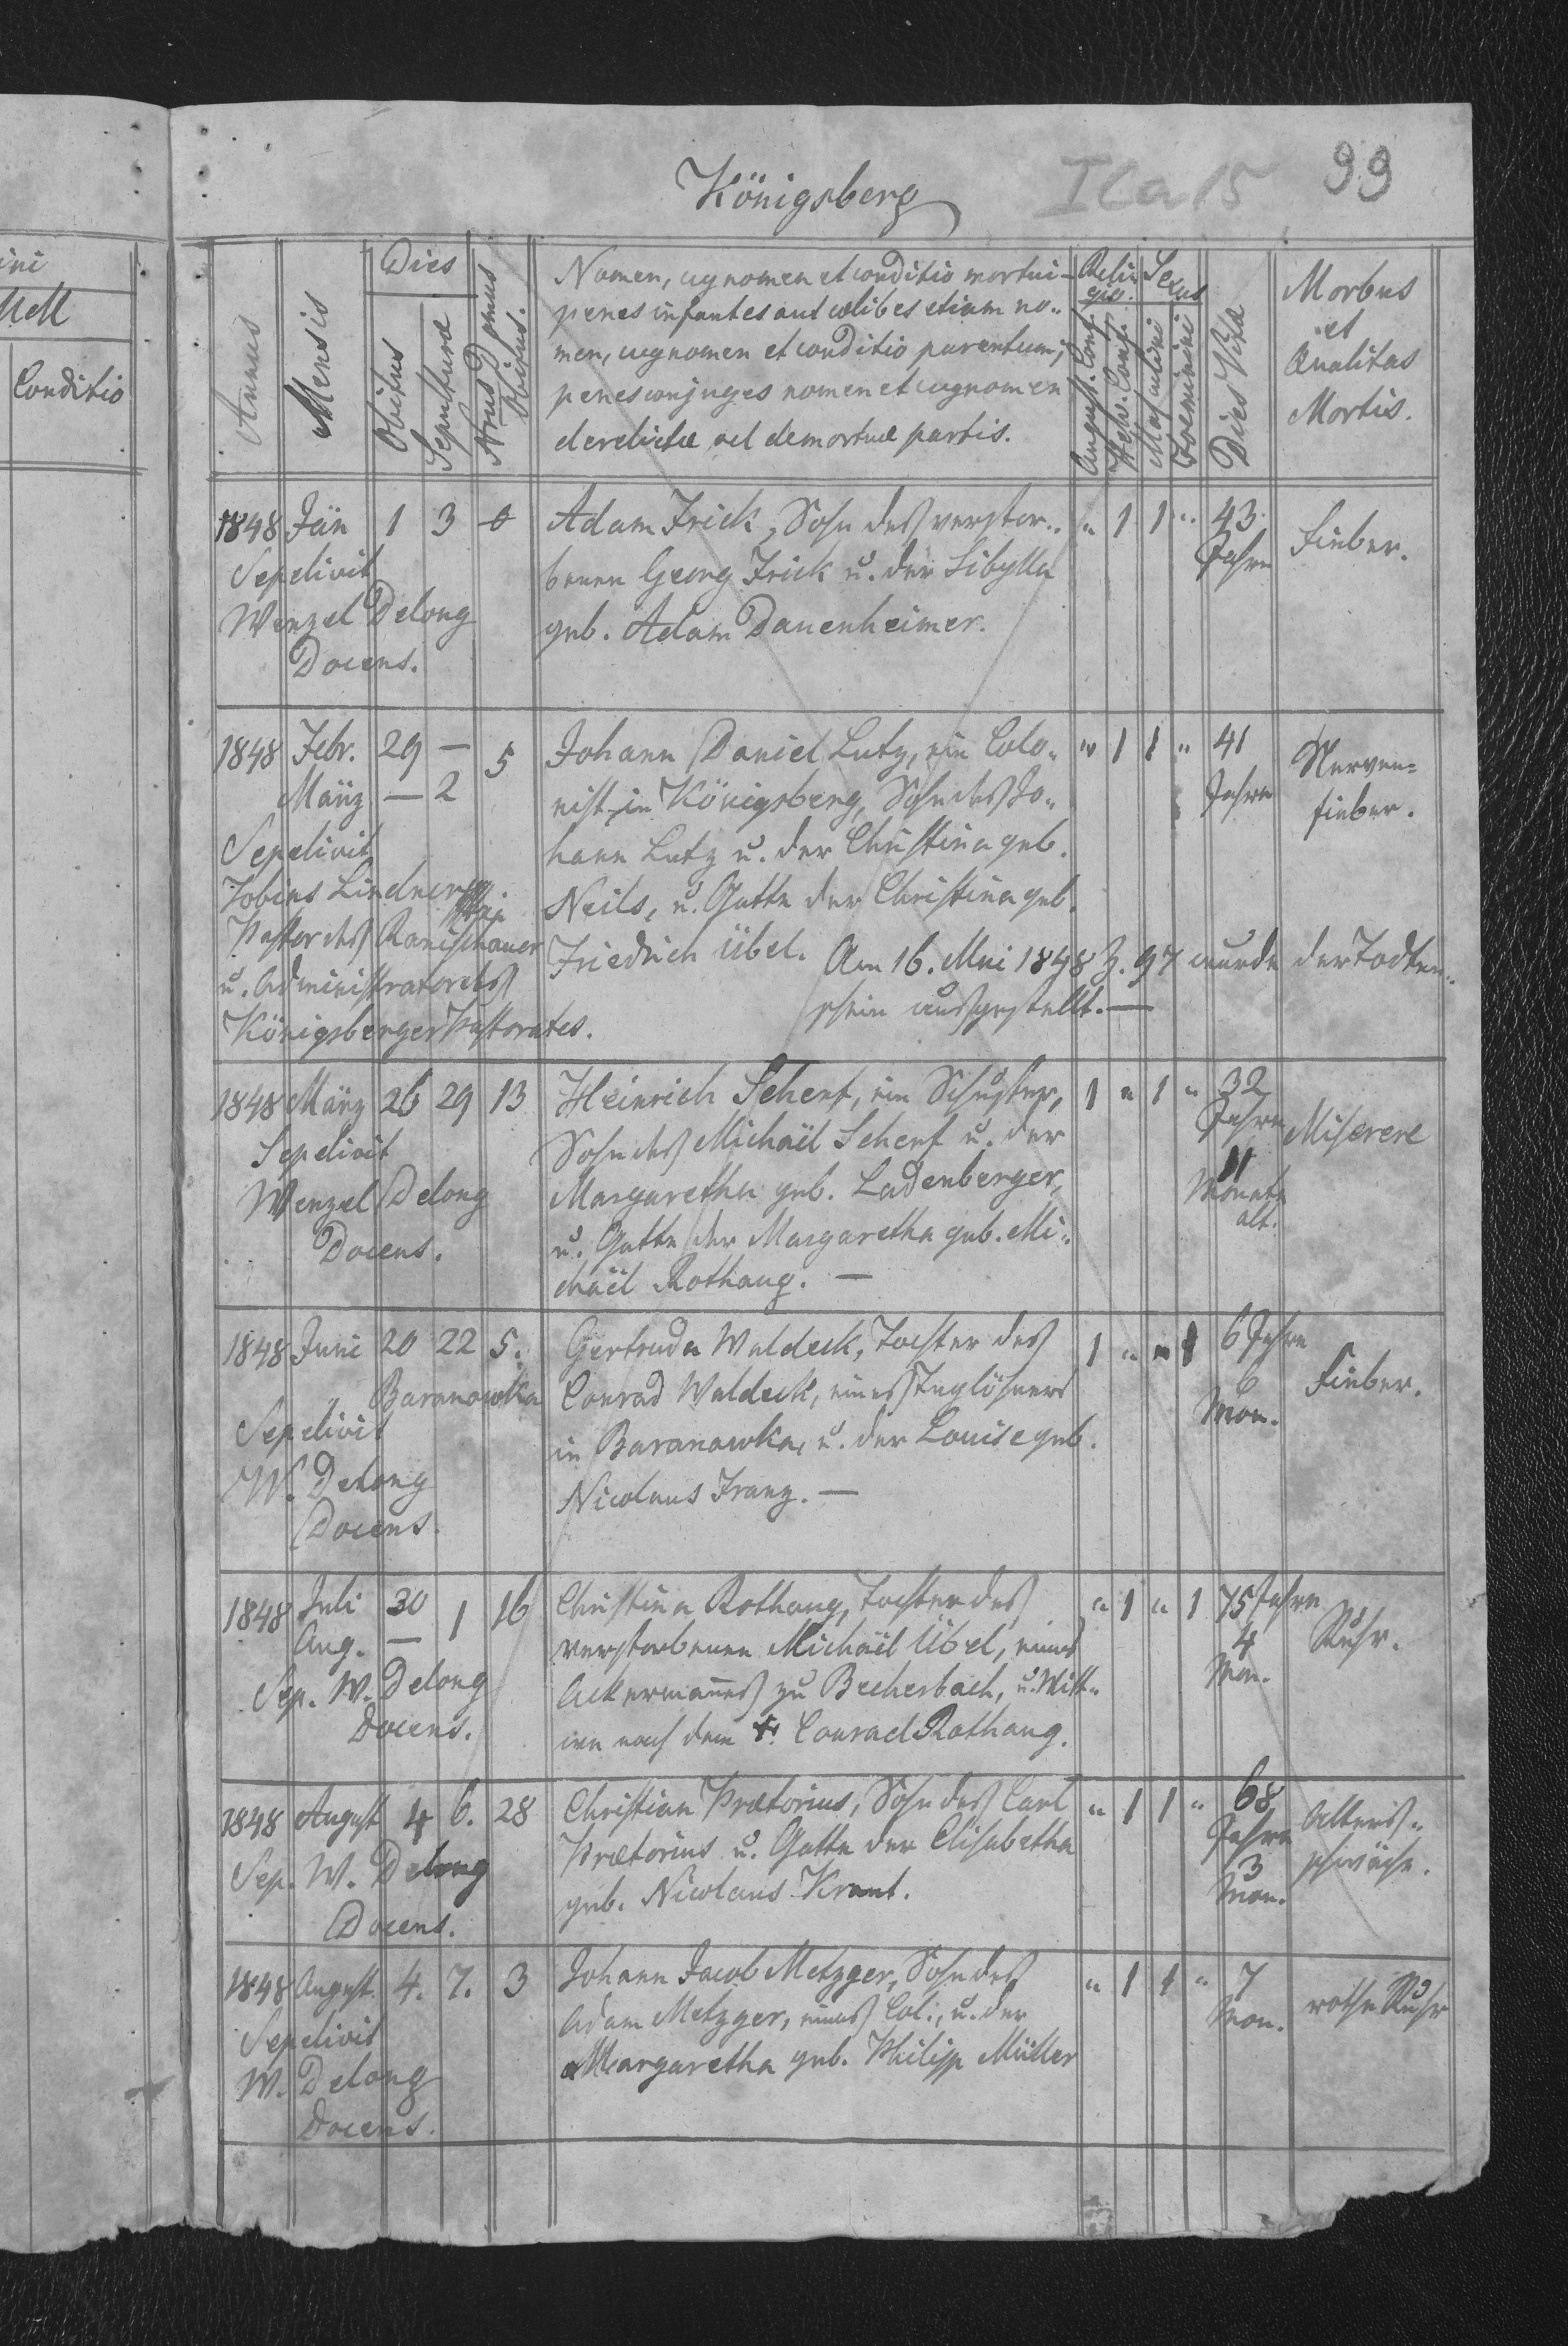 Königsberg
ICa 15
99
ini
Conditio
Annus
Mensis
Dies
Obitus
Sepulturæ
Nrus Domus
Obitus.
Nomen, cognomen et conditio mortui-
penes infantes aut cœlibes etiam no-
men, cognomen et conditio parentum;
penes conjuges nomen et cognomen
derelictæ vel demortuæ partis.
Reli-
gio.
August. Conf.
Helv. Conf.
Sexus
Masculini
Foeminini
Dies Vitæ
Morbus
et
Qualitas
Mortis.
1848 Jän 1 3 0 Adam Frick, Sohn deß verstor- " 1 1 " 43 Fieber.
Sepelivit benen Georg Frick u. der Sibylla Jahre
Wenzel Delong geb. Adam Dauenheimer.
Docens.
1848 Febr. 29 — 5 Johann Daniel Lutz, ein Colo- " 1 1 " 41 Nerven=
März — 2 nist in Königsberg, Sohn deß Jo- Jahre fieber.
Sepelivit hann Lutz u. der Christina geb.
Tobias Lindner Neils, u. Gatte der Christina geb.
Pastor deß Ranischauer Friedrich Übel. Am 16. Mai 1848 Z. 97 wurde der Todten-
u. Administrator deß schein außgestellt. —
Königsberger Pastorates.
1848 März 26 29 13 Heinrich Scherf, ein Schuster, 1 " 1 " 32 Miserere
Sepelivit Sohn deß Michäil Scherf u. der Jahre
Wenzel Delong Margaretha geb. Ladenberger, 11 Monate
Docens. u. Gatte der Margaretha geb. Mi- alt.
chäil Rothaug. —
1848 Juni 20 22 5. Gertruda Waldeck, Tochter deß 1 " " 1 6 Jahre Fieber.
Baranowka Conrad Waldeck, eines Taglöhners 6
Sepelivit in Baranowka, u. der Louise geb. Mon.
W. Delong Nicolaus Franz. —
Docens.
1848 Juli 30 1 16 Christina Rothaug, Tochter deß " 1 " 1 75 Jahre Ruhr.
Aug. — verstorbenen Michäil Übel, eines 4
Sep. W. Delong Ackermañes zu Becherbach, u. Witt- Mon.
Docens. we nach dem †. Conrad Rothaug.
1848 August 4 6. 28 Christian Prætorius, Sohn deß Carl " 1 1 " 68 Alterß-
Sep. W. Delong Prætorius u. Gatte der Elisabetha Jahre schwäche.
Docens. geb. Nicolaus Kraut. 3 Mon.
1848 August. 4. 7. 3 Johann Jacob Metzger, Sohn deß " 1 1 " 7 rothe Ruhr
Sepelivit Adam Metzger, eines Col:, u. der Mon.
W. Delong Margaretha geb. Philipp Müller
Docens.